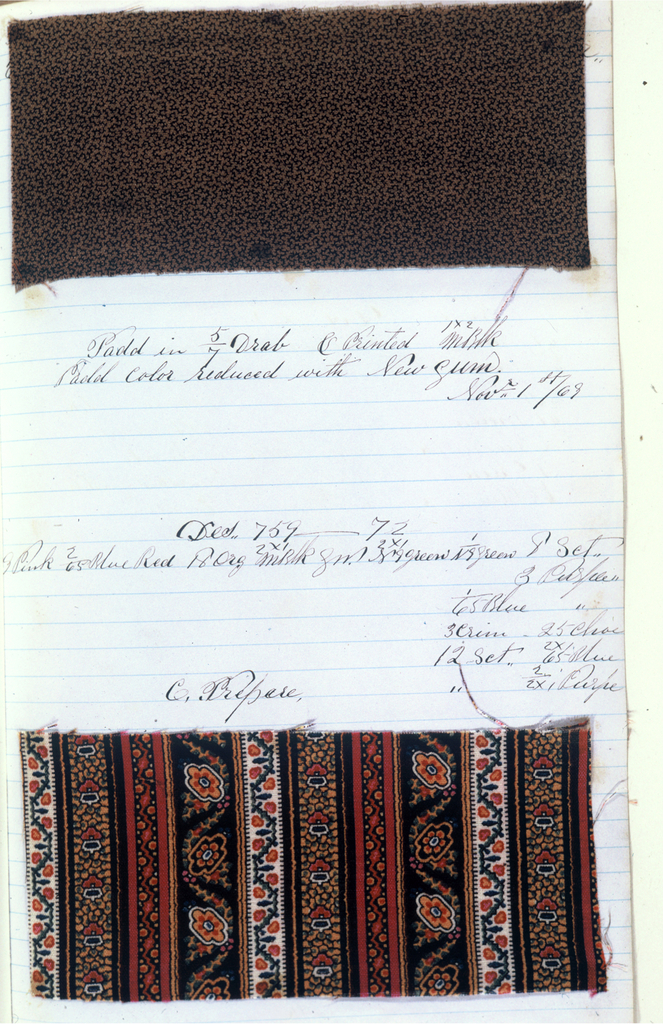 Padd in 5/7 Drab & Printed 1x2 MBlk
Padd Color reduced with New gum.
Novr 1st/69
Des. 759 — 72
Pink 2/65 Blue Red Org 2x1 MBlk 2x1 green 1/ green 8 Set.
3 Purple "
1/65 Blue "
3 Crim - 25 Choc
12 Set. 2x1/65 Blue
" 2/2x1 Purple
C. Prepare.